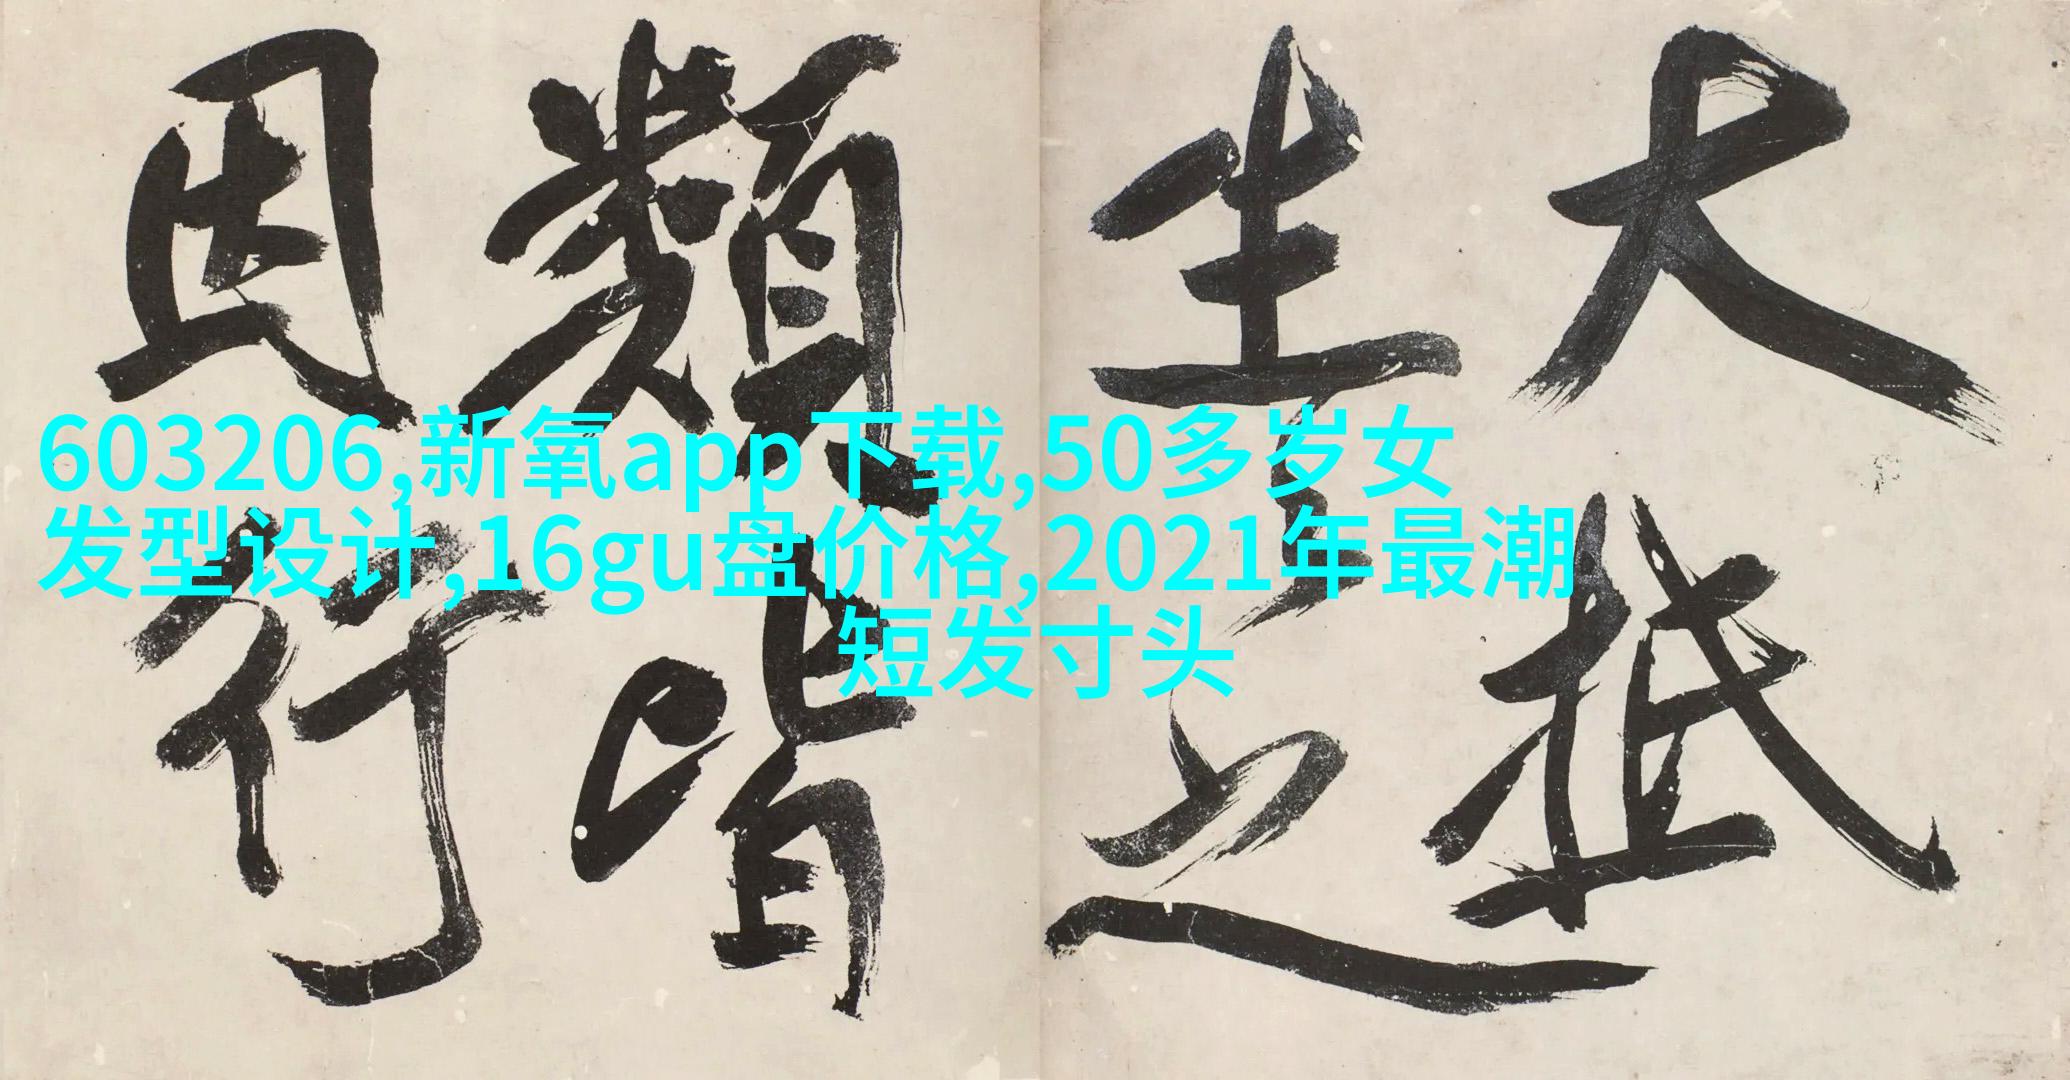 603206,新氧app下载,50多岁女
发型设计,16gu盘价格,2021年最潮
短发寸头
大抵
生之
類皆
因行